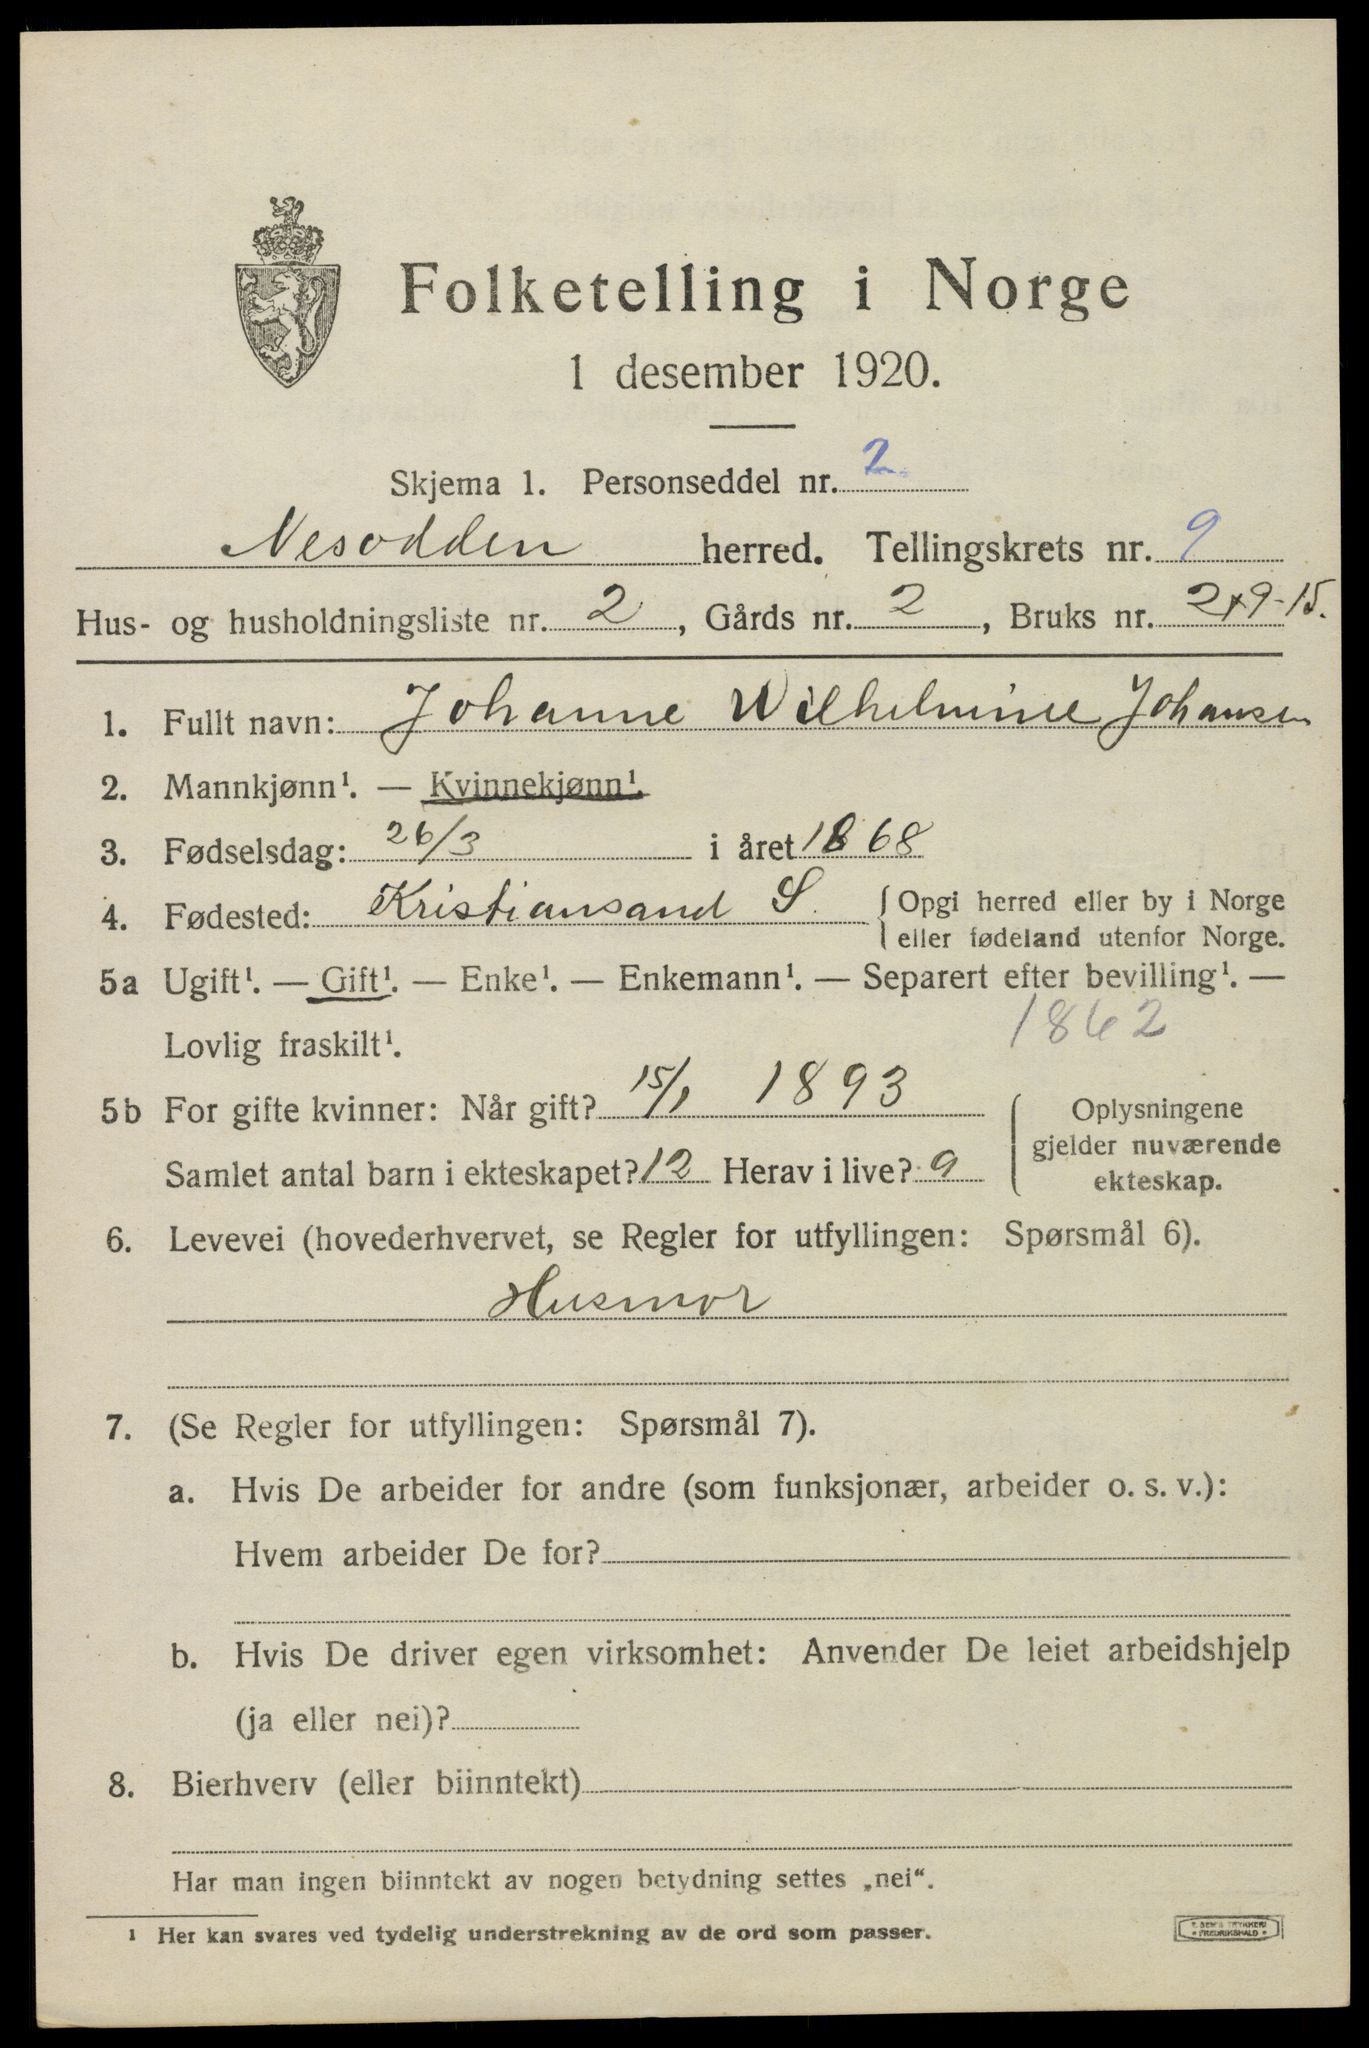 Folketelling i Norge
1 desember 1920.
Skjema 1. Personseddel nr. 2
Nesodden herred. Tellingskrets nr. 9
Hus- og husholdningsliste nr. 2, Gårds nr. 2, Bruks nr. 2+9-15.
1. Fullt navn: Johanne Wilhelmine Johansen
2. Mannkjønn¹. — Kvinnekjønn¹.
3. Fødselsdag: 26/3 i året 1868
4. Fødested: Kristiansand S. { Opgi herred eller by i Norge
eller fødeland utenfor Norge.
5a Ugift¹. — Gift¹. — Enke¹. — Enkemann¹. — Separert efter bevilling¹. —
Lovlig fraskilt¹. 1862
5b For gifte kvinner: Når gift? 15/1 1893
Samlet antal barn i ekteskapet? 12 Herav i live? 9
Oplysningene
gjelder nuværende
ekteskap.
6. Levevei (hovederhvervet, se Regler for utfyllingen: Spørsmål 6).
Husmor
7. (Se Regler for utfyllingen: Spørsmål 7).
a. Hvis De arbeider for andre (som funksjonær, arbeider o. s. v.):
Hvem arbeider De for?
b. Hvis De driver egen virksomhet: Anvender De leiet arbeidshjelp
(ja eller nei)?
8. Bierhverv (eller biinntekt)
Har man ingen biinntekt av nogen betydning settes „nei“.
¹ Her kan svares ved tydelig understrekning av de ord som passer.
TRYKKERI
FREDRIKSHALD